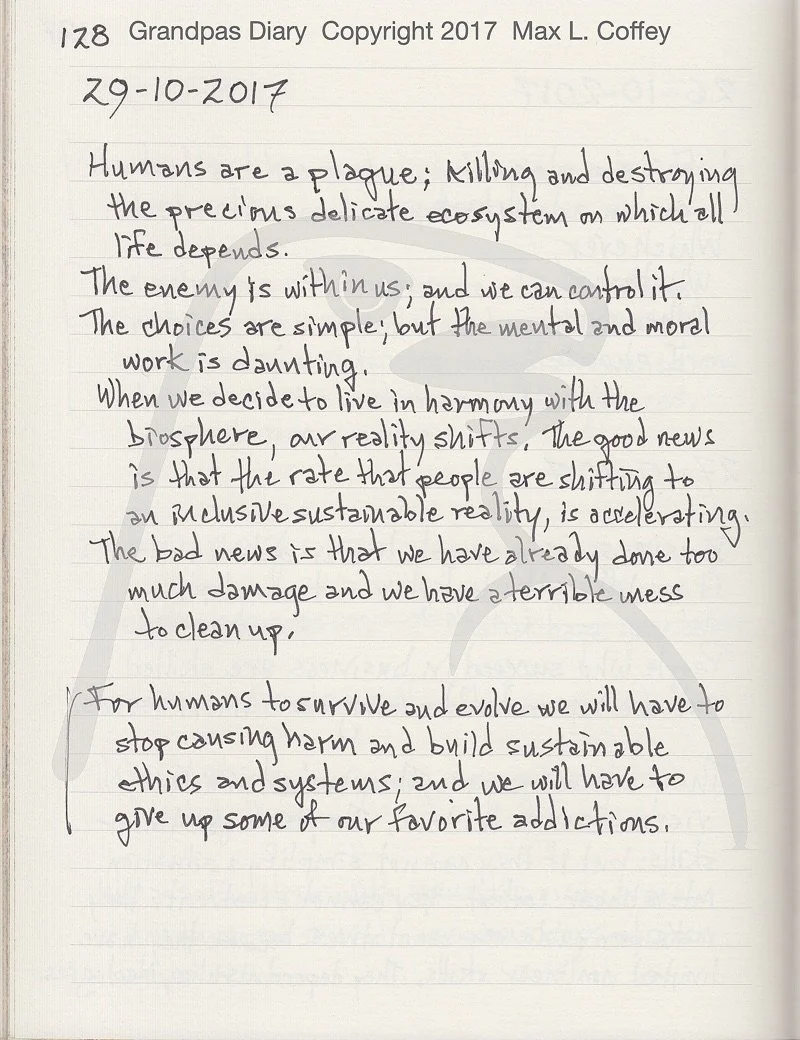 128 Grandpas Diary Copyright 2017 Max L. Coffey
29-10-2017
Humans are a plague; killing and destroying
the precious delicate ecosystem on which all
life depends.
The enemy is within us; and we can control it.
The choices are simple; but the mental and moral
work is daunting.
When we decide to live in harmony with the
biosphere, our reality shifts. The good news
is that the rate that people are shifting to
an inclusive sustainable reality, is accelerating.
The bad news is that we have already done too
much damage and we have a terrible mess
to clean up.
For humans to survive and evolve we will have to
stop causing harm and build sustainable
ethics and systems; and we will have to
give up some of our favorite addictions.